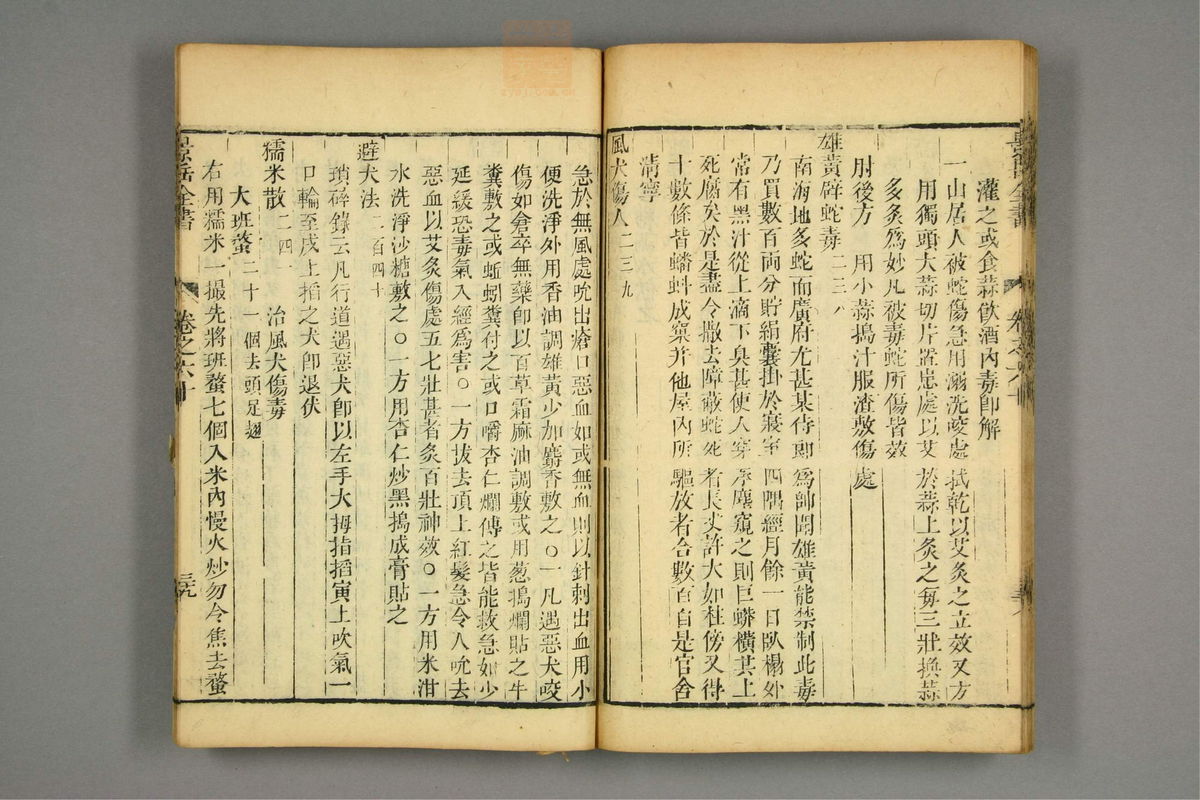 灌之或食蒜飲酒內毒即解
一山居人被蛇傷急用溺洗咬處拭乾以艾灸之立效又方
用獨頭大蒜切片置患處以艾於蒜上灸之每三壯換蒜
多灸爲妙凡被毒蛇所傷皆效
肘後方 用小蒜搗汁服渣敷傷處
雄黃辟蛇毒二三八
南海地多蛇而廣府尤甚某侍郎爲帥聞雄黃能禁制此毒
乃買數百両分貯絹囊掛於寢室四隅經月餘一日臥榻外
常有黑汁從上滴下臭甚使人穿承塵窺之則巨蟒橫其上
死腐矣於是盡令撤去障蔽蛇死者長丈許大如柱傍又得
十數條皆蟠蚪成窠并他屋內所驅放者合數百自是官舍
淸寧
風犬傷人二三九
景岳全書 卷之六十 三九
急於無風處吮出瘡口惡血如或無血則以針刺出血用小
便洗淨外用香油調雄黃少加麝香敷之○一凡遇惡犬咬
傷如倉卒無藥卽以百草霜麻油調敷或用葱搗爛貼之牛
糞敷之或蚯蚓糞付之或口嚼杏仁爛傅之皆能救急如少
延緩恐毒氣入經爲害○一方拔去頂上紅髮急令人吮去
惡血以艾灸傷處五七壯甚者灸百壯神效○一方用米泔
水洗淨沙糖敷之○一方用杏仁炒黑搗成膏貼之
避犬法二百四十
瑣碎錄云凡行道遇惡犬卽以左手大拇指掐寅上吹氣一
口輪至戌上掐之犬卽退伏
糯米散二四一 治風犬傷毒
大班蝥二十一個去頭足翅
右用糯米一撮先將班蝥七個入米內慢火炒勿令焦去蝥